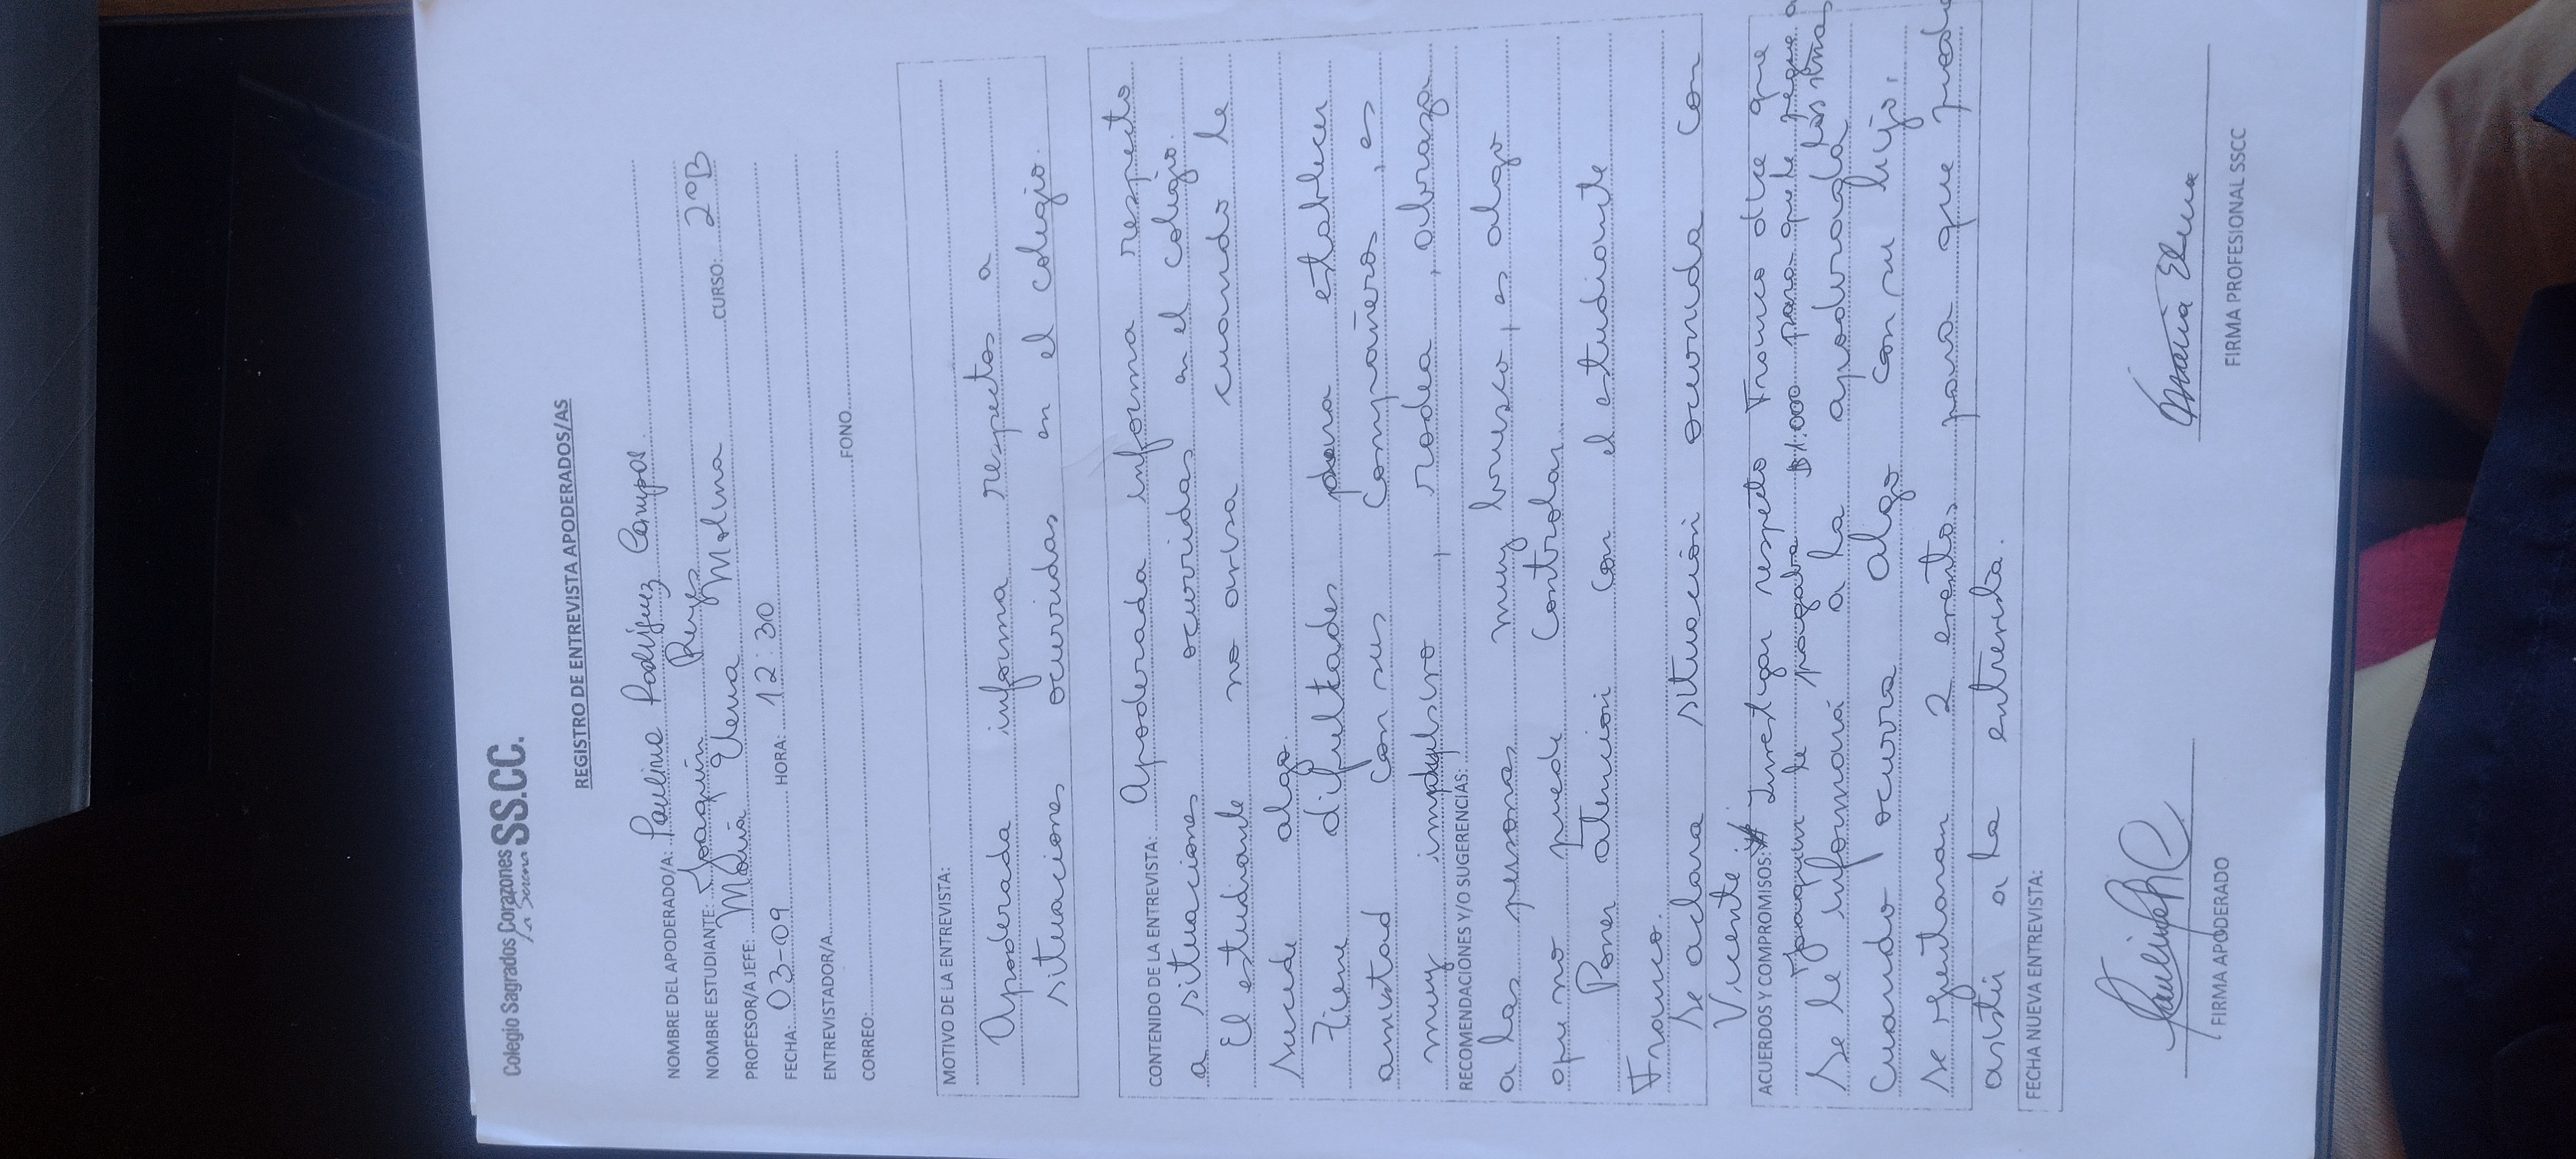 Colegio Sagrados Corazones SS.CC.
La Serena
REGISTRO DE ENTREVISTA APODERADOS/AS
NOMBRE DEL APODERADO/A: Paulina Rodríguez Campos.
NOMBRE ESTUDIANTE: Joaquín Reyes CURSO: 2°B
PROFESOR/A JEFE: María Elena Molina
FECHA: 03-09 HORA: 12:30
ENTREVISTADOR/A
CORREO: FONO
MOTIVO DE LA ENTREVISTA:
Apoderada informa respectos a
situaciones ocurridas en el colegio.
CONTENIDO DE LA ENTREVISTA: Apoderada informa respecto
a situaciones ocurridas en el colegio.
El estudiante no avisa cuando le
sucede algo.
Tiene dificultades para establecer
amistad con sus compañeros, es
muy impulsivo, rodea, abraza
RECOMENDACIONES Y/O SUGERENCIAS:
a las personas muy brusco, es algo
que no puede controlar.
Poner atención con el estudiante
Franco.
Se aclara situación ocurrida con
Vicente.
ACUERDOS Y COMPROMISOS: Investigar respeto Franco dice que
Joaquín le pagaba $1.000 para que le pegue a
Se le informará a la apoderada las otras
cuando ocurra algo con su hijo.
Se agendaran 2 para que pueda
asistir a la entrevista.
FECHA NUEVA ENTREVISTA:
FIRMA APODERADO
María Elena
FIRMA PROFESIONAL SSCC